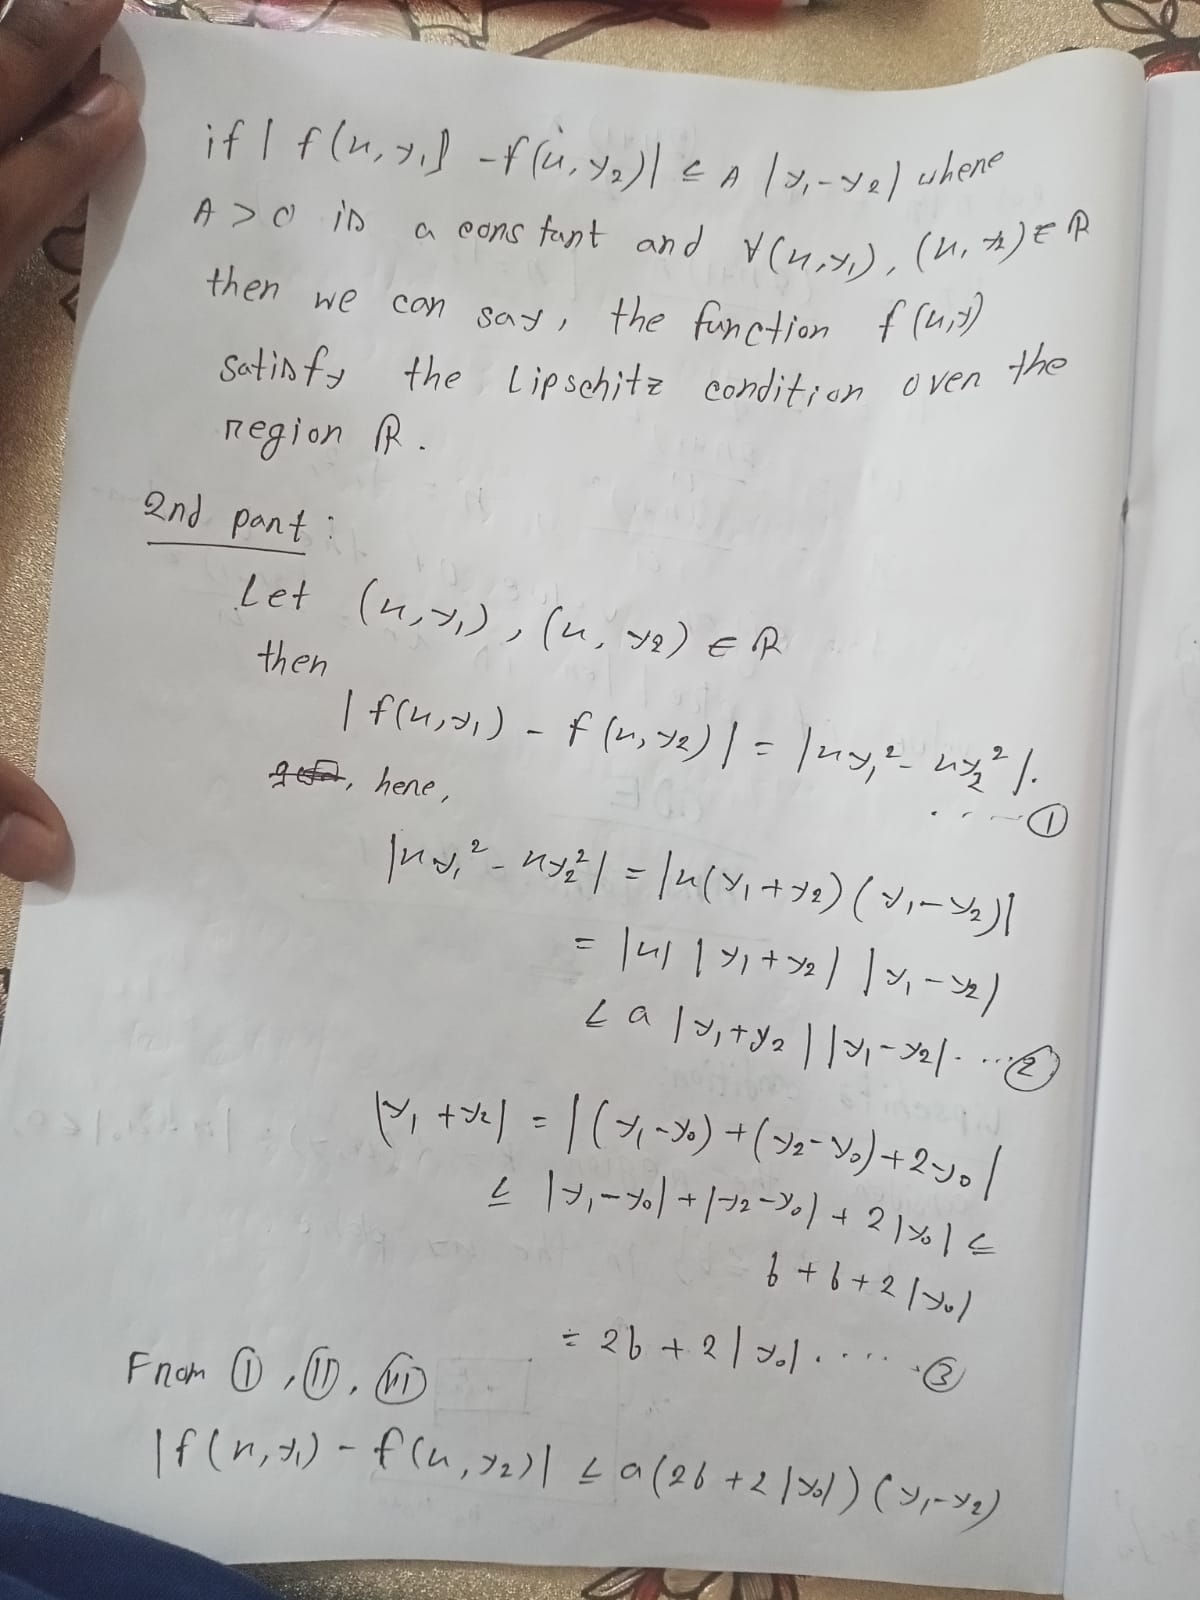 if | f(x, y₁) - f(x, y₂)| ≤ A |y₁-y₂| where
A > 0 is a constant and ∀(x,y₁), (x, y₂) ∈ R
then we can say, the function f(x,y)
satisfy the Lipschitz condition over the
region R.
2nd part :
Let (x, y₁), (x, y₂) ∈ R
then
| f(x,y₁) - f(x, y₂)| = |xy₁² - xy₂²|.
, here, .... ①
|xy₁² - xy₂²| = |x(y₁+y₂) (y₁-y₂)|
= |x| |y₁+y₂| |y₁-y₂|
≤ a |y₁+y₂| |y₁-y₂|. ... ②
|y₁+y₂| = |(y₁-y₀) + (y₂-y₀) + 2y₀|
≤ |y₁-y₀| + |y₂-y₀| + 2|y₀| ≤
b + b + 2|y₀|
= 2b + 2|y₀|. .... ③
From ①, ⑪, ⑪⑪
|f(x, y₁) - f(x, y₂)| ≤ a(2b + 2|y₀|) (y₁-y₂)